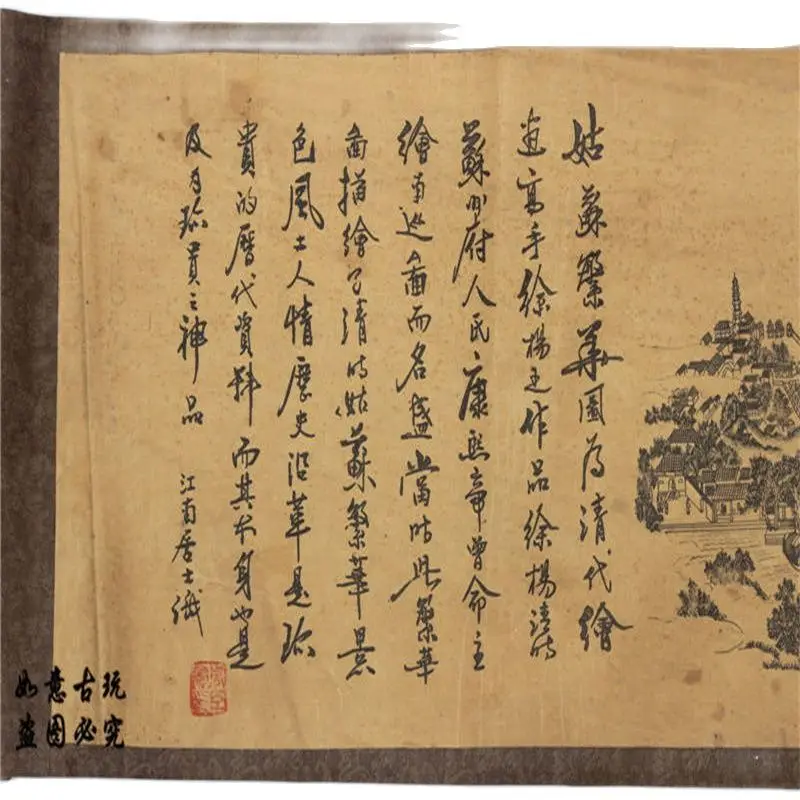 姑蘇繁華圖为清代繪
画高手徐楊之作品徐楊清时
蘇州府人民康熙帝曾命主
繪南巡圖而名盛當时此繁華
畵描繪了清时姑蘇繁華景
色風土人情歷史沿革是珍
貴的曆代資料而其本身也是
及为珍貴之神品
江南居士識
如意古玩
盗图必究